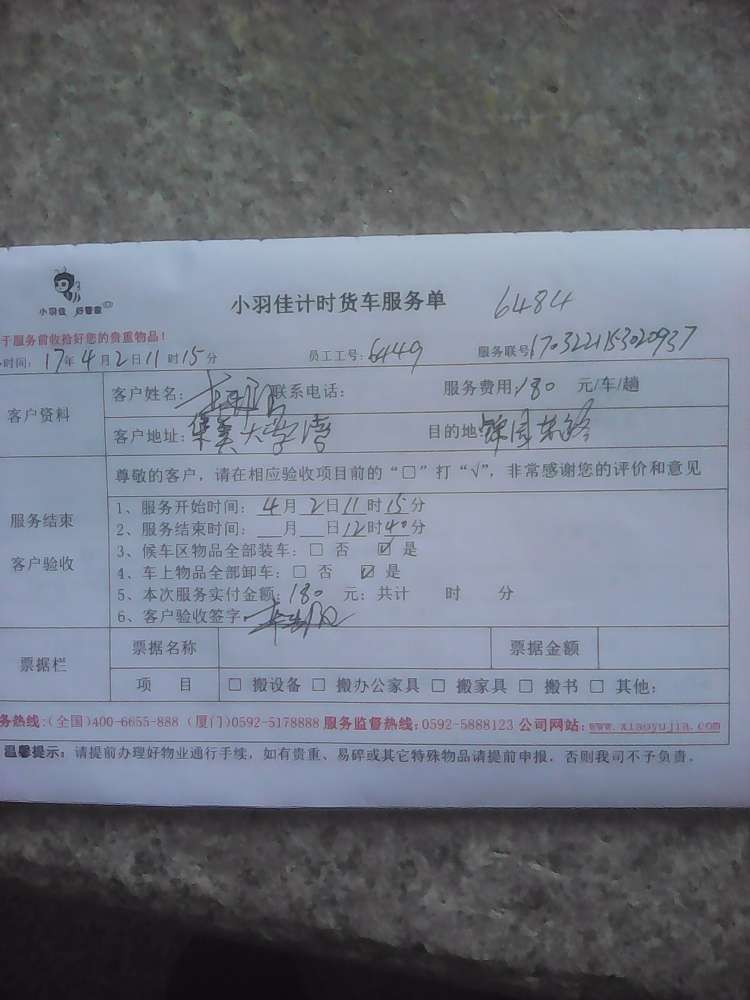 小羽佳 好管家
小羽佳计时货车服务单 6484
于服务前收拾好您的贵重物品！
时间：17年4月2日11时15分 员工工号：6449 服务联号1703221153020937
客户资料
客户姓名： 联系电话： 服务费用：180 元/车/趟
客户地址：集美大学 目的地：
服务结束
客户验收
尊敬的客户，请在相应验收项目前的“□”打“√”，非常感谢您的评价和意见
1、服务开始时间：4月2日11时15分
2、服务结束时间：__月__日12时40分
3、候车区物品全部装车：□ 否 ☑ 是
4、车上物品全部卸车：□ 否 ☑ 是
5、本次服务实付金额：180 元；共计 时 分
6、客户验收签字：
票据栏
票据名称 票据金额
项 目 □ 搬设备 □ 搬办公家具 □ 搬家具 □ 搬书 □ 其他：
务热线：(全国)400-6655-888 (厦门)0592-5178888 服务监督热线：0592-5888123 公司网站：www.xiaoyujia.com
温馨提示：请提前办理好物业通行手续，如有贵重、易碎或其它特殊物品请提前申报，否则我司不予负责。